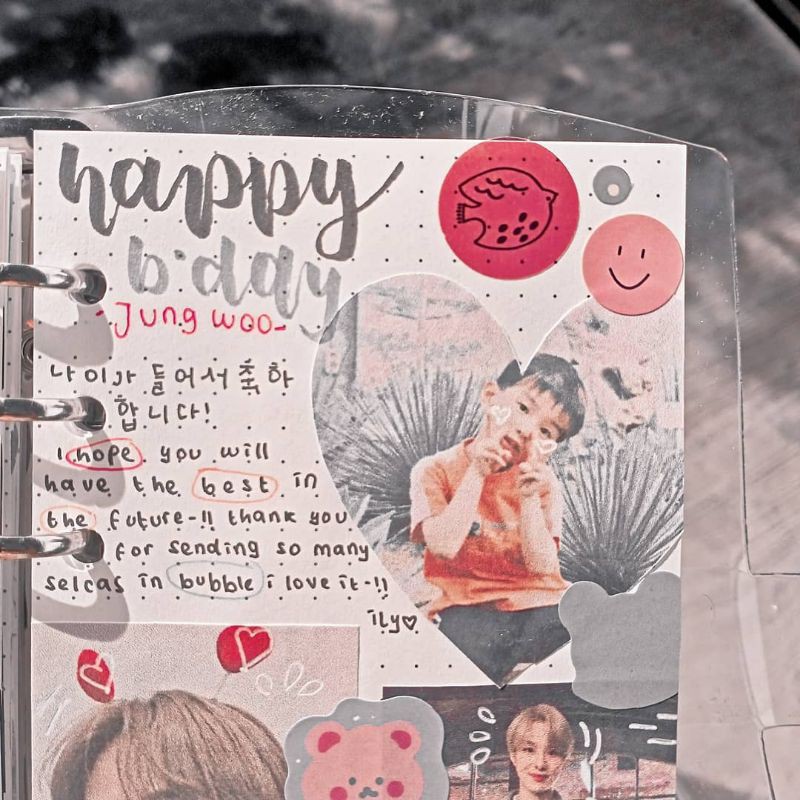 happy
b'day
-Jung woo-
나이가 들어서 축하
합니다!
I hope you will
have the best in
the future-!! thank you
for sending so many
selcas in bubble i love it-!!
ily♡